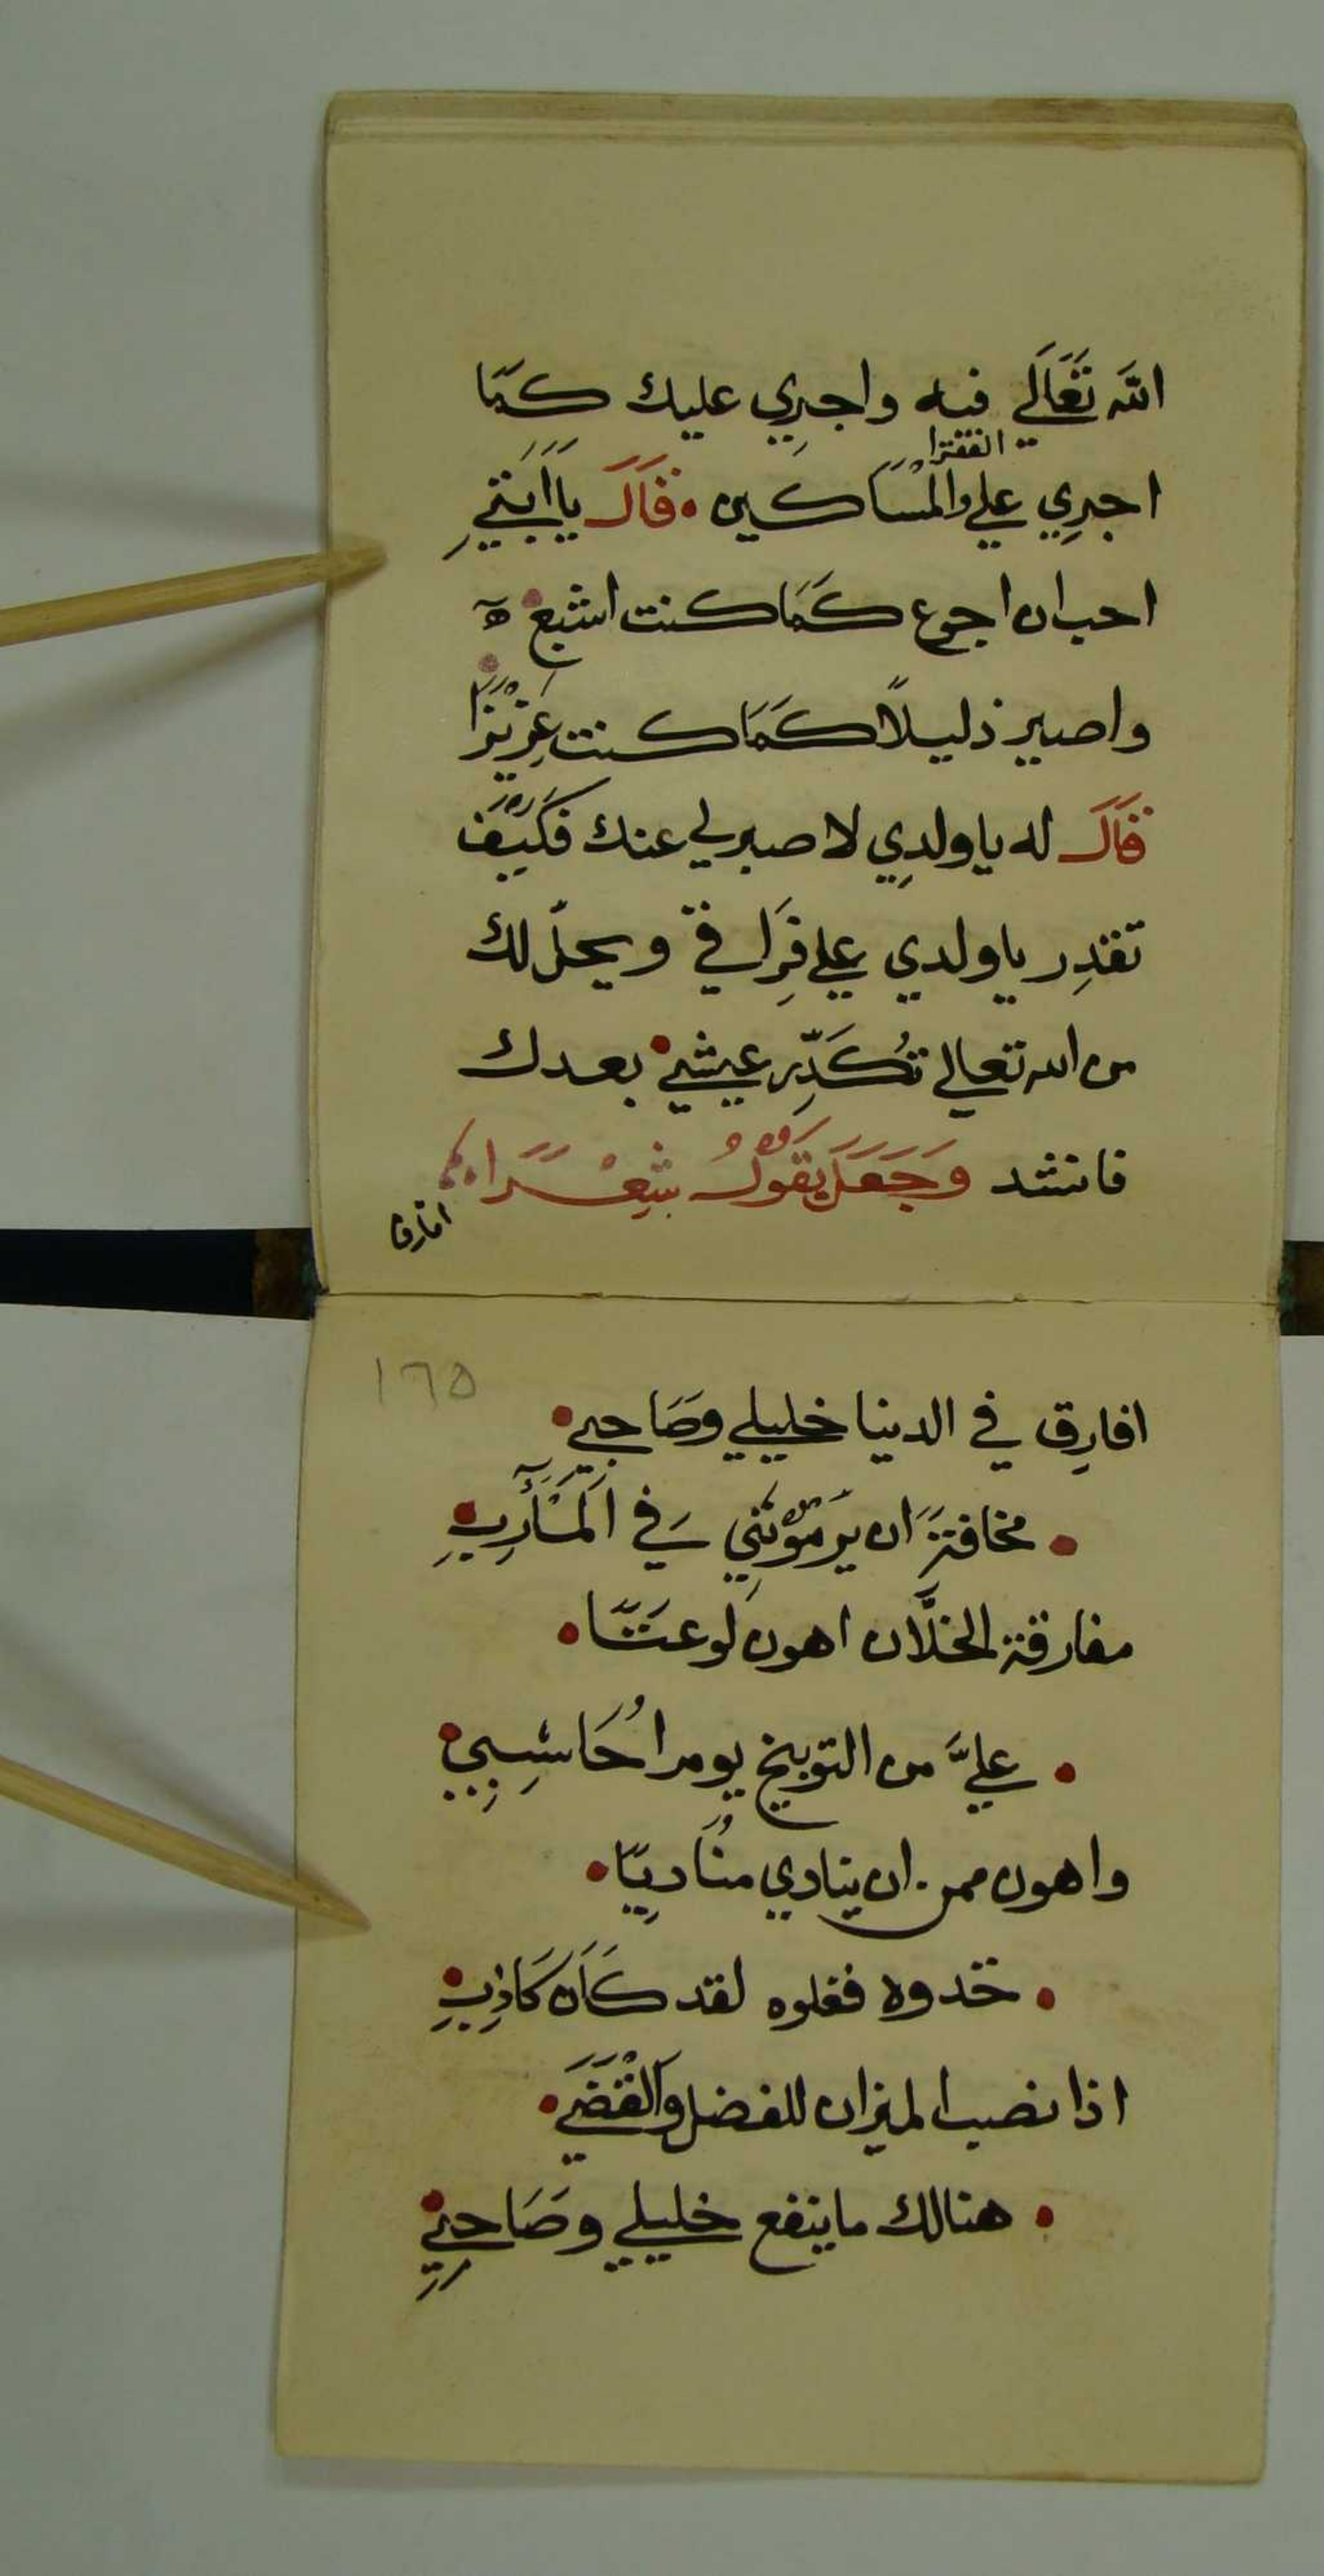 الله تَعَالَي فيه واجرِي عليك كمَا
الفقرا
اجرِي علي والْمَسَاكين • قَالَ يا اَبَتِي
احب ان اجوع كَمَا كنت اشبع ه
واصير ذليلًا كَمَا كنت عَزِيْزًا
قَالَ له يا ولدِي لا صبر لي عنك فكَيْفَ
تقدِر يا ولدي علي فِرَاقي ويحلّ لك
من الله تعالي تُكَدِّر عيشي • بعدك
فانشد وَجَعَلَ يَقُوْلُ شِعْرًا
افارق
١٦٥
افارِق في الدنيا خليلي وصَاحبِي •
• مخافتة ان يَرمَوْنَنِي في الْمَأَرِبِ •
مفارقة الخلَّان اهون لوعتًا •
• عليَّ من التوبيخ يوم احُاسِبِي •
واهون ممن ان ينادي منُاديًا •
• خدوه فغلوه لقد كَانَ كَاذِبِ •
اذا نصب الميزان للفضل وَالْقَضَي •
• هنالك ما ينفع خليلي وصَاحبِي •